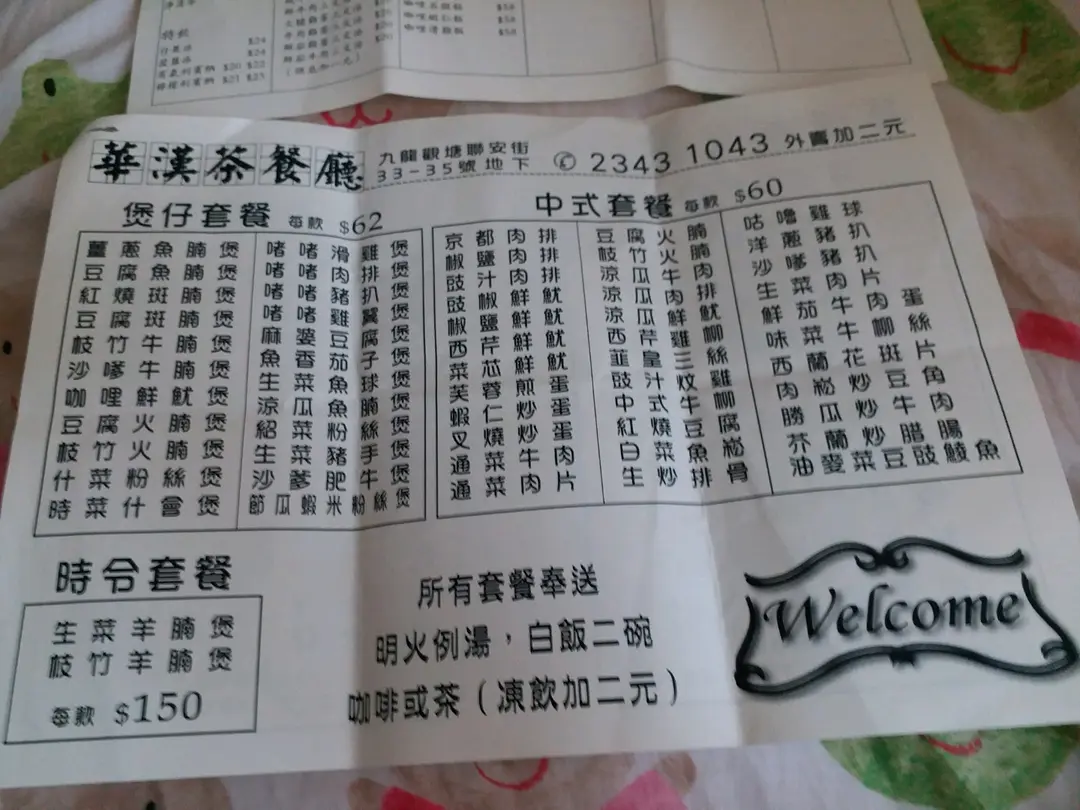 特飲
$24
$24
$20 $22
$21 $23
華漢茶餐廳
九龍觀塘聯安街
33-35號地下
✆ 2343 1043 外賣加二元
煲仔套餐 每款 $62
薑蔥魚腩煲
豆腐魚腩煲
紅燒斑腩煲
豆腐斑腩煲
枝竹牛腩煲
沙嗲牛腩煲
咖哩鮮魷煲
豆腐火腩煲
枝竹火腩煲
什菜粉絲煲
時菜什會煲
啫啫滑雞煲
啫啫肉排煲
啫啫豬扒煲
啫啫雞翼煲
麻婆豆腐煲
魚香茄子煲
生菜魚球煲
涼瓜魚腩煲
紹菜粉絲煲
生菜豬手煲
沙爹肥牛煲
節瓜蝦米粉絲煲
中式套餐 每款 $60
京都肉排
椒鹽肉排
豉汁肉排
豉椒鮮魷
椒鹽鮮魷
西芹鮮魷
菜芯鮮魷
芙蓉煎蛋
蝦仁炒蛋
叉燒炒蛋
通菜牛肉
通菜肉片
豆腐火腩
枝竹火腩
涼瓜牛肉
涼瓜肉排
涼瓜鮮魷
西芹雞柳
韮皇三絲
豉汁炆雞
中式牛柳
紅燒豆腐
白菜魚崧
生炒排骨
咕嚕雞球
洋蔥豬扒
沙嗲豬扒
生菜肉片
鮮茄牛肉蛋
味菜牛柳絲
西蘭花斑片
肉崧炒豆角
勝瓜炒牛肉
芥蘭炒臘腸
油麥菜豆豉鯪魚
時令套餐
生菜羊腩煲
枝竹羊腩煲
每款 $150
所有套餐奉送
明火例湯，白飯二碗
咖啡或茶（凍飲加二元）
Welcome